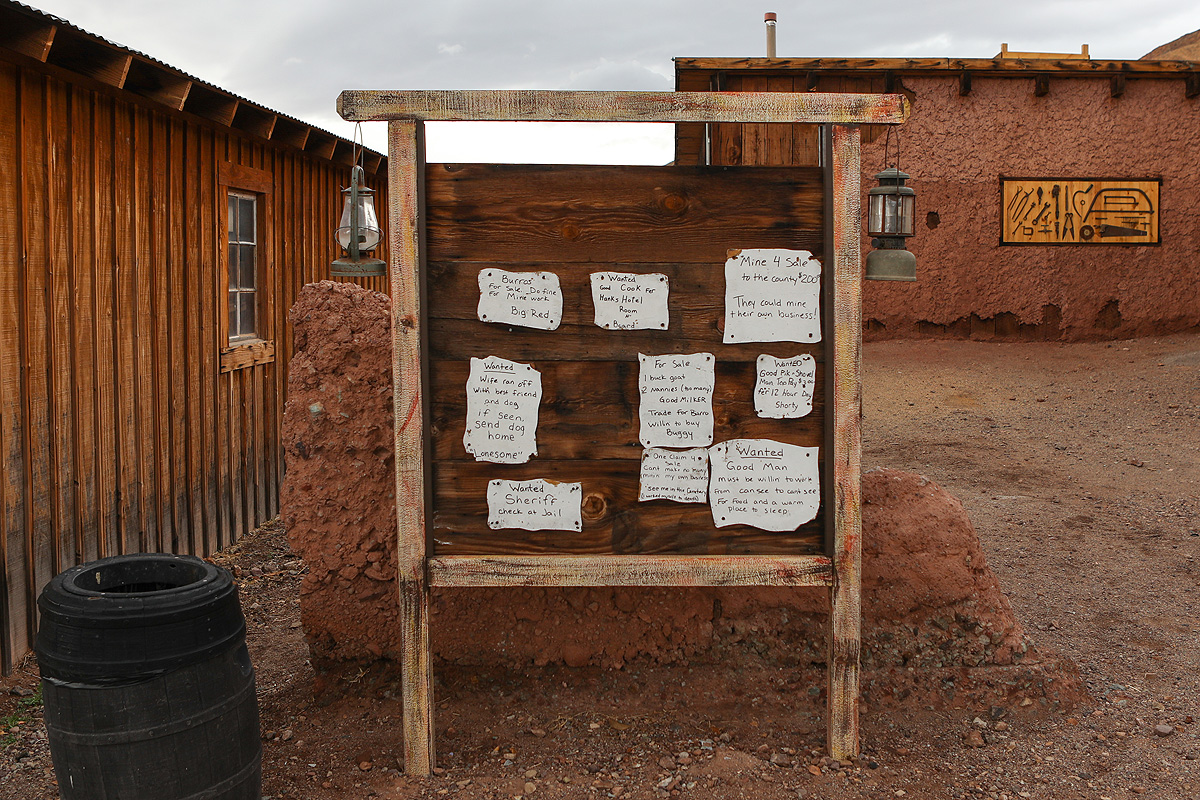 Burros
For Sale. Do fine
For Mine work
Big Red
Wanted
Good Cook For
Hanks Hotel
Room
or
Board
Mine 4 Sale
to the county $200
They could mine
their own business!
Wanted
Wife ran off
With best friend
and dog
if seen
Send dog
home
"Lonesome"
For Sale
1 buck goat
2 Nannies (too many)
Good MILKER
Trade for Barro
Willin to buy
Buggy
WantED
Good Pik-Shovel
Man Too Pay $3.00
Per 12 Hour Day
Shorty
Wanted
Sheriff
check at Jail
One Claim 4
Sale
Cant make no living
minin my own busines
See me in the Cemetary
(I worked myself to death)
Wanted
Good Man
must be willin to work
from can see to cant see
For food and a warm
place to sleep.